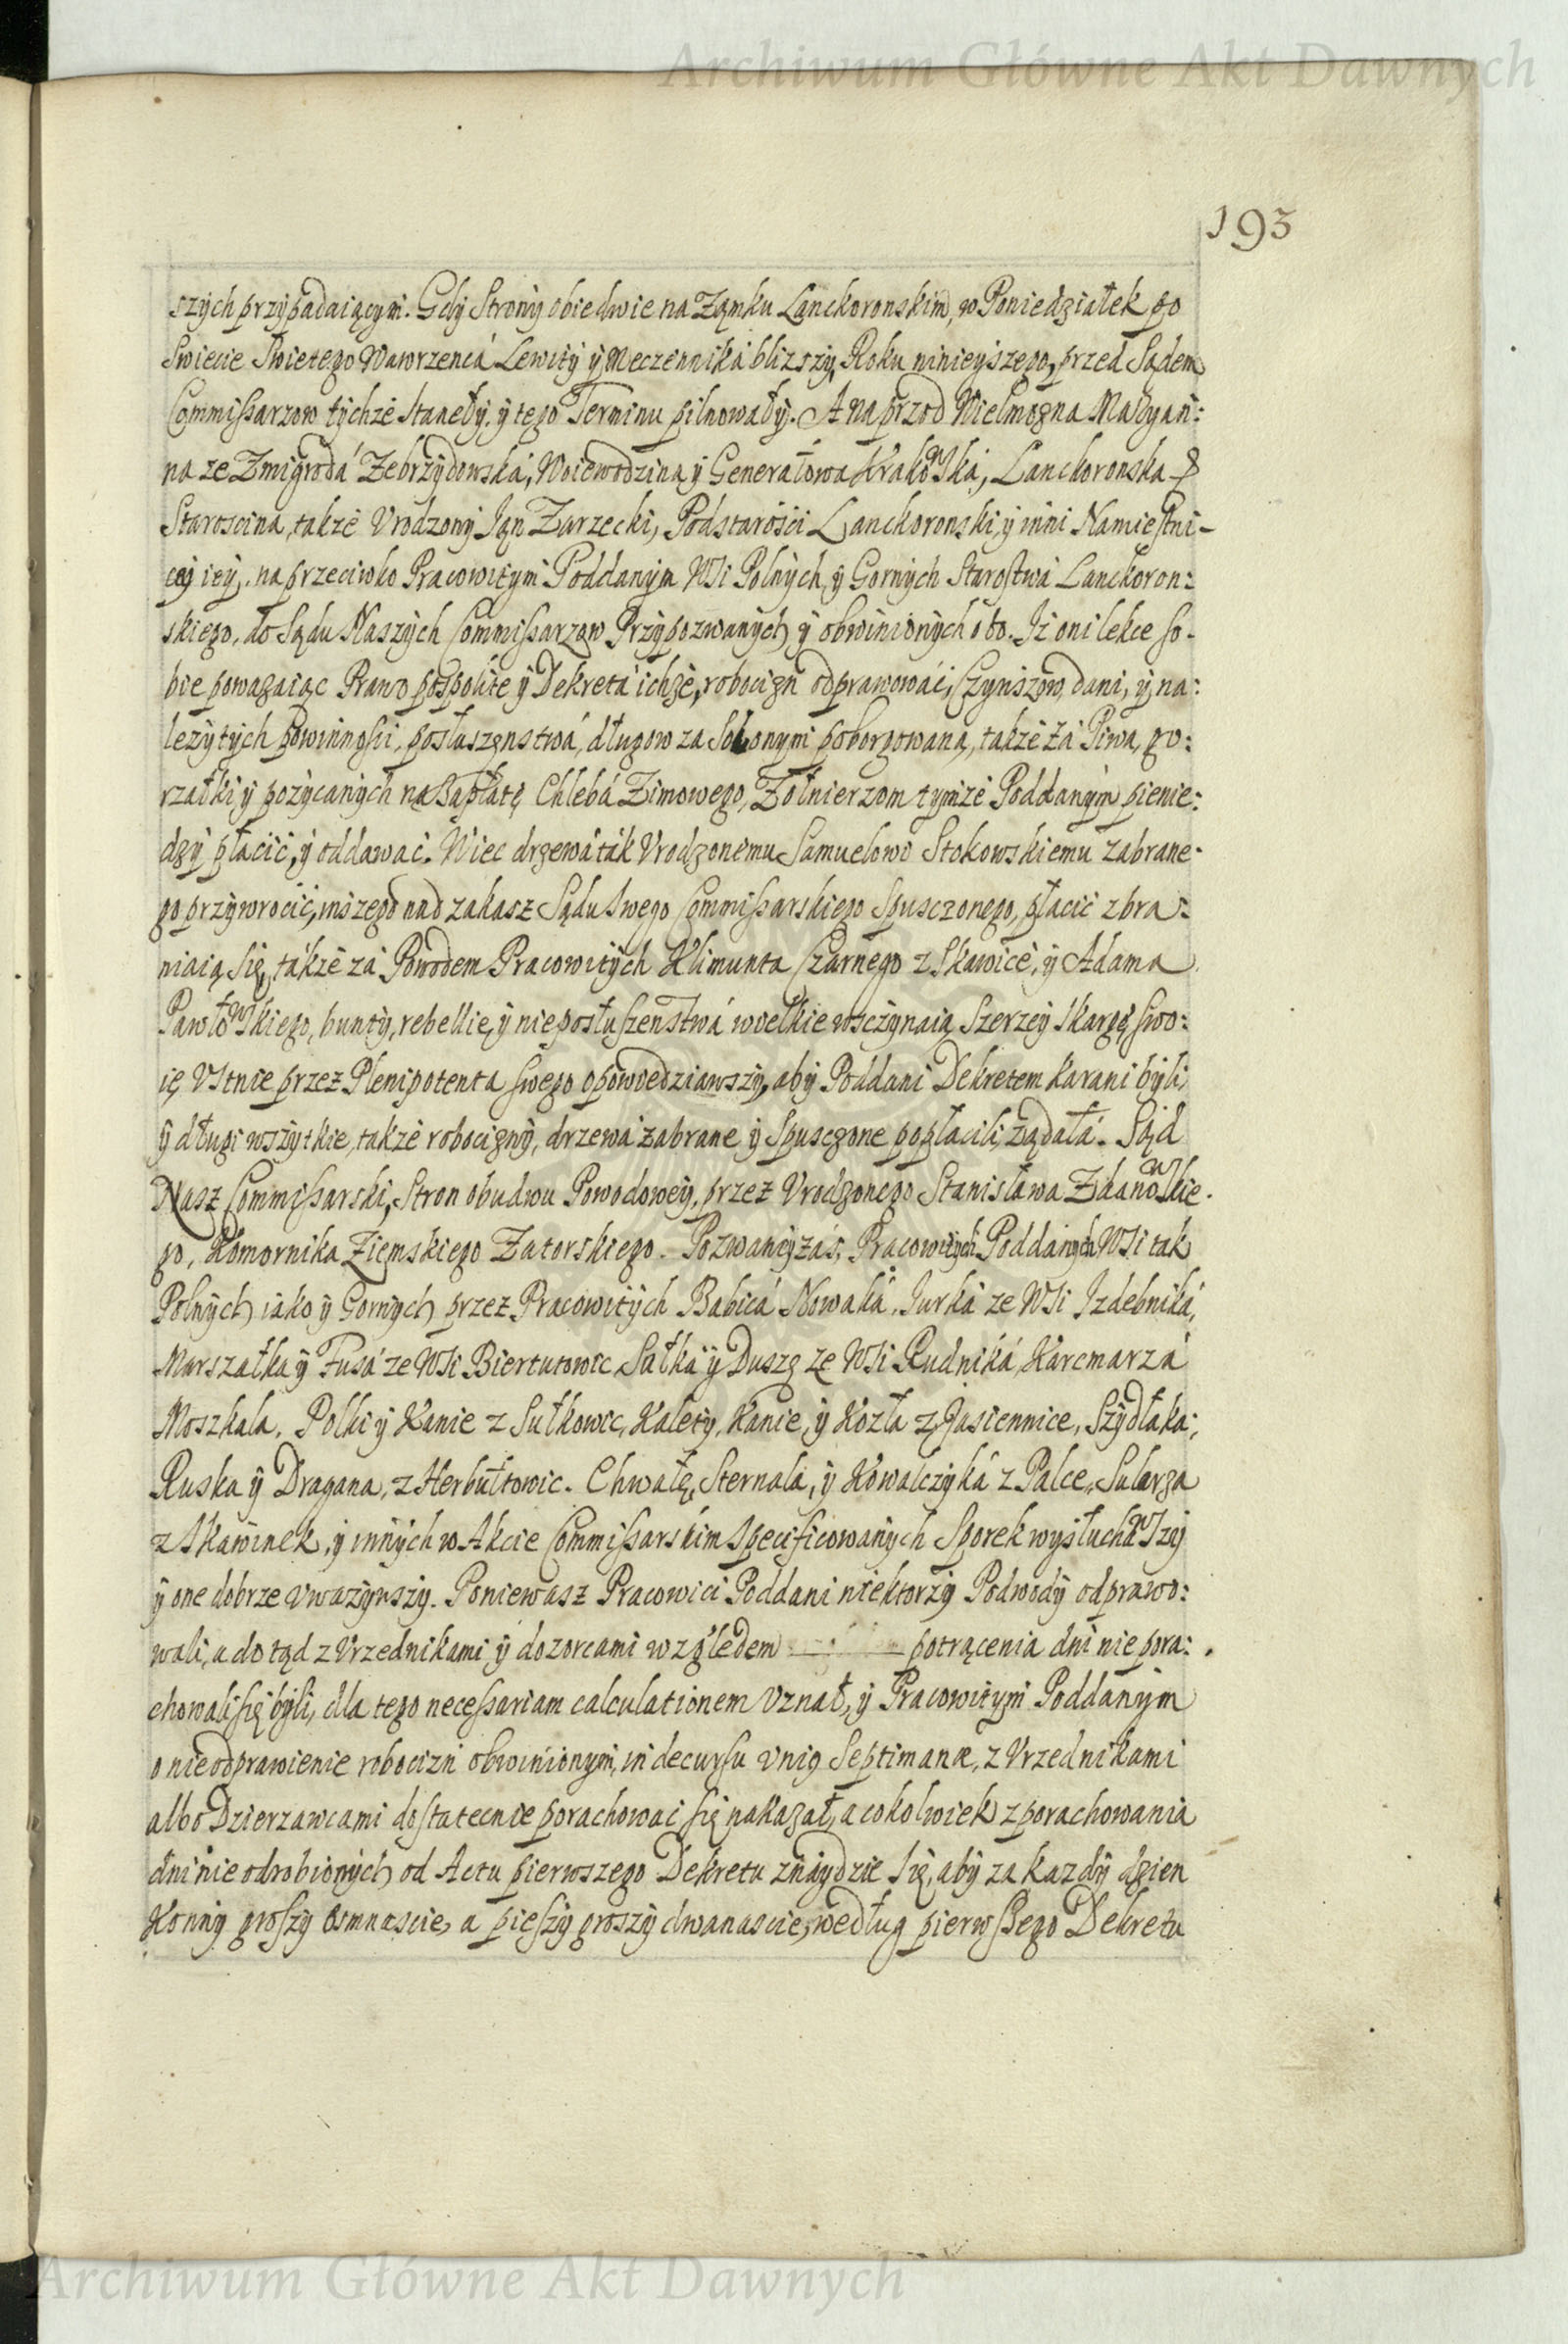 Archiwum Główne Akt Dawnych
193
szych przypadaiącym. Gdy Strony obiedwie na Ząmku Lanckoronskim, w Poniedziałek po
Swiecie Swietego Wawrzencá Lewity y Meczenniká blizszy, Roku ninieyszego, przed Sądem
Commissarzow tychże Stanęły, y tego Terminu pilnowały. A naprzod Wielmozna Maryan:
na ze Zmigrodá Zebrzydowská, Woiewodzina y Generałowa Krakowská, Lanckoronska
Staroscina, także Vrodzony Ian Zarzecki, Podstarości Lanckoronski, y inni Namiestni-
cy iey, na przeciwko Pracowitym Poddanym WSi Polnych, y Gornych Starostwá Lanckoron:
skiego, do Sądu Naszych Commissarzow Przypozwanych y obwinionych o to. Iż oni lekce so-
bie powazaiąc Prawo pospolite y Dekretá ichże, robocizn odprawować, Czynszow, dani, y na:
lezytych powinnosci, posłuszęnstwá, długow za Solonymi poborgowaną, także zá Piwa, go:
rzałki y pożycanych na Zapłatę Chlebá Zimowego, Zołnierzom tymże Poddanym pienie:
dzy płacić, y oddawać. Więc drzewá ták Vrodzonemu Samuelowi Stokowskiemu zabrane-
go przywrocić, inszego nad zakasz Sądu Swego Commissarskiego Spusczonego, płacić zbra:
niaią się, także zá Powodem Pracowitych Klimunta Czarnego z Skawice, y Adama
Pawłowskiego, bunty, rebellie, y nieposłuszenstwá wielkie wsczynaią Szerzey Skargę swo:
ię Vstnie przez Plenipotenta swego opowiedziawszy, aby Poddani Dekretem karani byli,
y długi wszytkie, także robocizny, drzewá zabrane y Spusczone popłacili, żądałá. Sąd
Nasz Commissarski, Stron obudwu Powodowey, przez Vrodzonego Stanisława Zdanowskie-
go, Komornika Ziemskiego Zatorskiego. Pozwaney zás, Pracowitych Poddanych WSi tak
Polnych iako y Gornych przez Pracowitych Babicá Nowaká, Iurká ze WSi Izdebniká,
Marszałka y Fusá ze WSi Biertutowic Sałka y Duszę ze WSi Rudniká, Karcmarzá
Moszkala, Polki y Kanie z Sułkowic, Kalety, Kanie, y Kozła z Jasiennice, Szydłaka,
Ruska y Dragana, z Herbułtowic. Chwałę, Sternala, y Kowalczyká z Palce, Sularza
z Skawinek, y innych w Akcie Commissarskim Specificowanych Sporek wysłuchawszy
y one dobrze vwazywszy. Poniewasz Pracowici Poddani niektorzy Podwody odprawo:
wali, a do tąd z Vrzednikami y dozorcami względem potrącenia dni nie pora:
chowali się byli, dla tego necessariam calculationem Vznał, y Pracowitym Poddanym
o nieodprawienie robocizn obwinionym, in decursu vnius Septimanæ, z Vrzednikami
albo Dzierzawcami dostatecnie porachować się nakazał, a cokolwiek z porachowania
dni nie odrobionych od Actu pierwszego Dekretu znáydzie Się, aby za kazdy dzien
Konny groszy osmnascie, a pieszy groszy dwanascie, według pierwszego Dekretu
Archiwum Główne Akt Dawnych